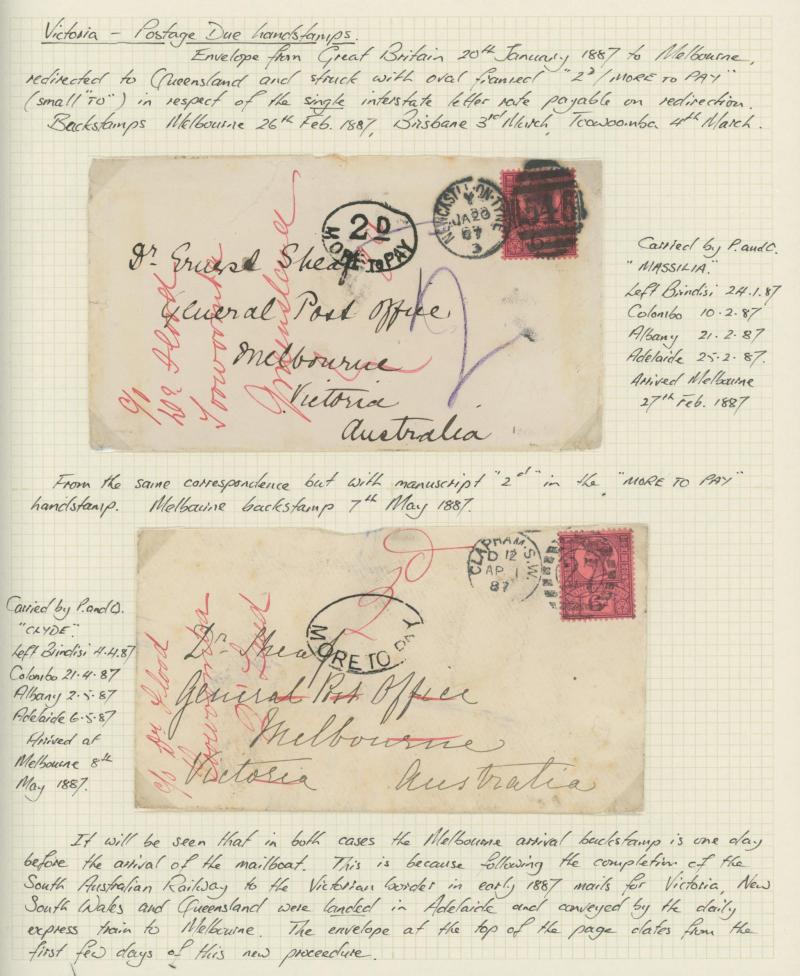 Victoria – Postage Due handstamps.
Envelope from Great Britain 20th January 1887 to Melbourne,
redirected to Queensland and struck with oval framed "2d/MORE TO PAY"
(small "TO") in respect of the single interstate letter rate payable on redirection.
Backstamps Melbourne 26th Feb. 1887, Brisbane 3rd March, Toowoomba 4th March.
2D
MORE TO PAY
NEWCASTLE-ON-TYNE
JA 20
87
3
545
Dr Ernest Sheaf
General Post Office
Melbourne
Victoria
Australia
c/o
Dr Flood
Toowoomba
Queensland
2
Carried by P. and O.
"MASSILIA".
Left Brindisi 24.1.87
Colombo 10.2.87
Albany 21.2.87
Adelaide 25.2.87.
Arrived Melbourne
27th Feb. 1887
From the same correspondence but with manuscript "2d" in the "MORE TO PAY"
handstamp. Melbourne backstamp 7th May 1887.
CLAPHAM.S.W.
D 12
AP 1
87
MORE TO PAY
2d
Dr Sheaf
General Post Office
Melbourne
Victoria Australia
c/o Dr Flood
Toowoomba
Q. Land
Carried by P. and O.
"CLYDE".
Left Brindisi 4.4.87
Colombo 21.4.87
Albany 2.5.87
Adelaide 6.5.87
Arrived at
Melbourne 8th
May 1887.
It will be seen that in both cases the Melbourne arrival backstamp is one day
before the arrival of the mailboat. This is because following the completion of the
South Australian Railway to the Victorian border in early 1887 mails for Victoria, New
South Wales and Queensland were landed in Adelaide and conveyed by the daily
express train to Melbourne. The envelope at the top of the page dates from the
first few days of this new proceedure.